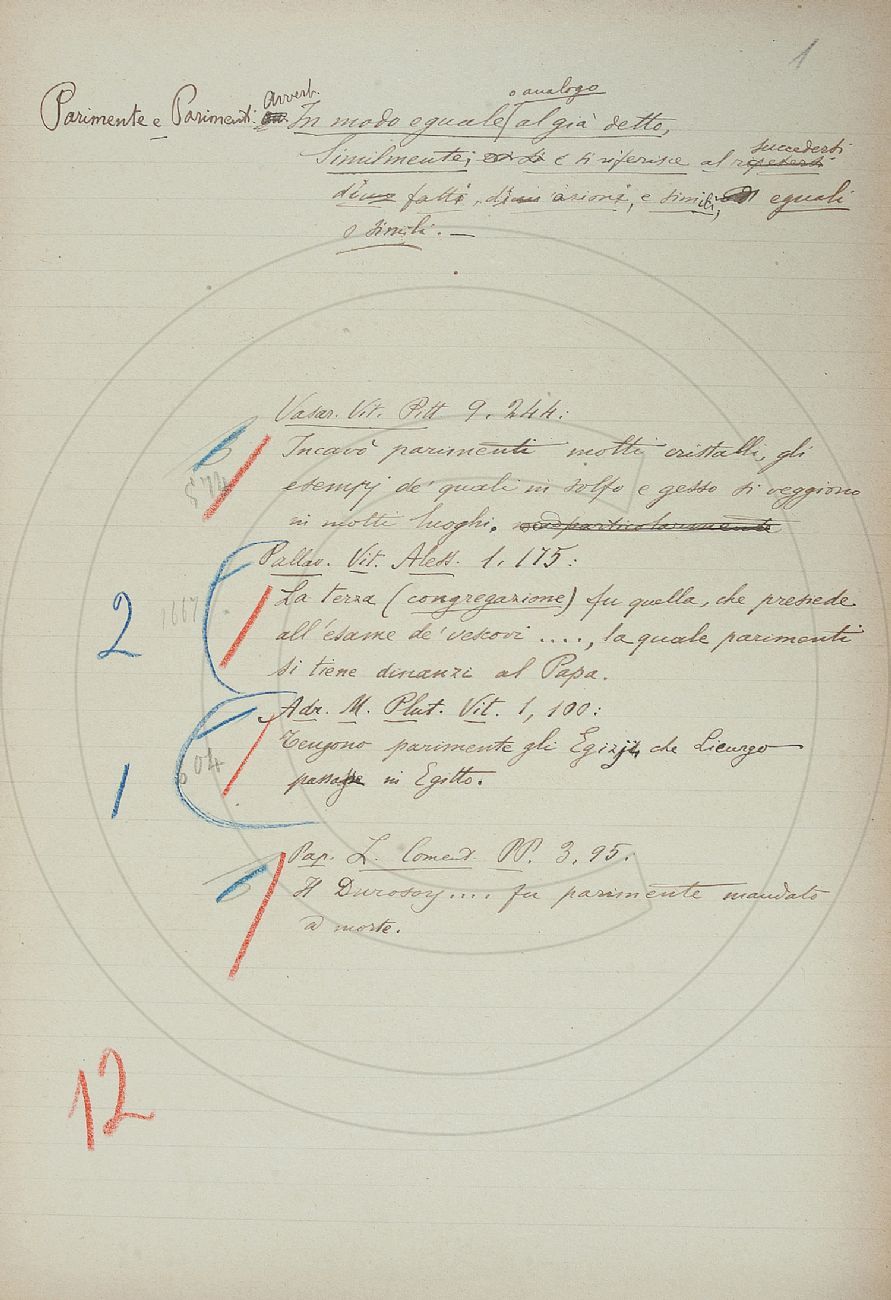 1
o analogo
Parimente e Parimenti. Avverb. In modo eguale al già detto,
succedersi
Similmente; e si riferisce al ripetersi
di fatti, di azioni, e simili, eguali
o simili. —
Vasar. Vit. Pitt 9. 244:
Incavò parimenti molti cristalli, gli
esempj de' quali in solfo e gesso si veggiono
in molti luoghi. particolarmente
Pallav. Vit. Aless. 1. 175:
La terza (congregazione) fu quella, che pressede
2 1667
all'esame de' vescovi ...., la quale parimenti
si tiene dinanzi al Papa.
Adr. M. Plut. Vit. 1, 100:
Tengono parimente gli Egizj, che Licurgo
604
1 passasse in Egitto.
Pap. L. Coment. PP. 3. 95.
Il Durosoy .... fu parimente mandato
a morte.
12